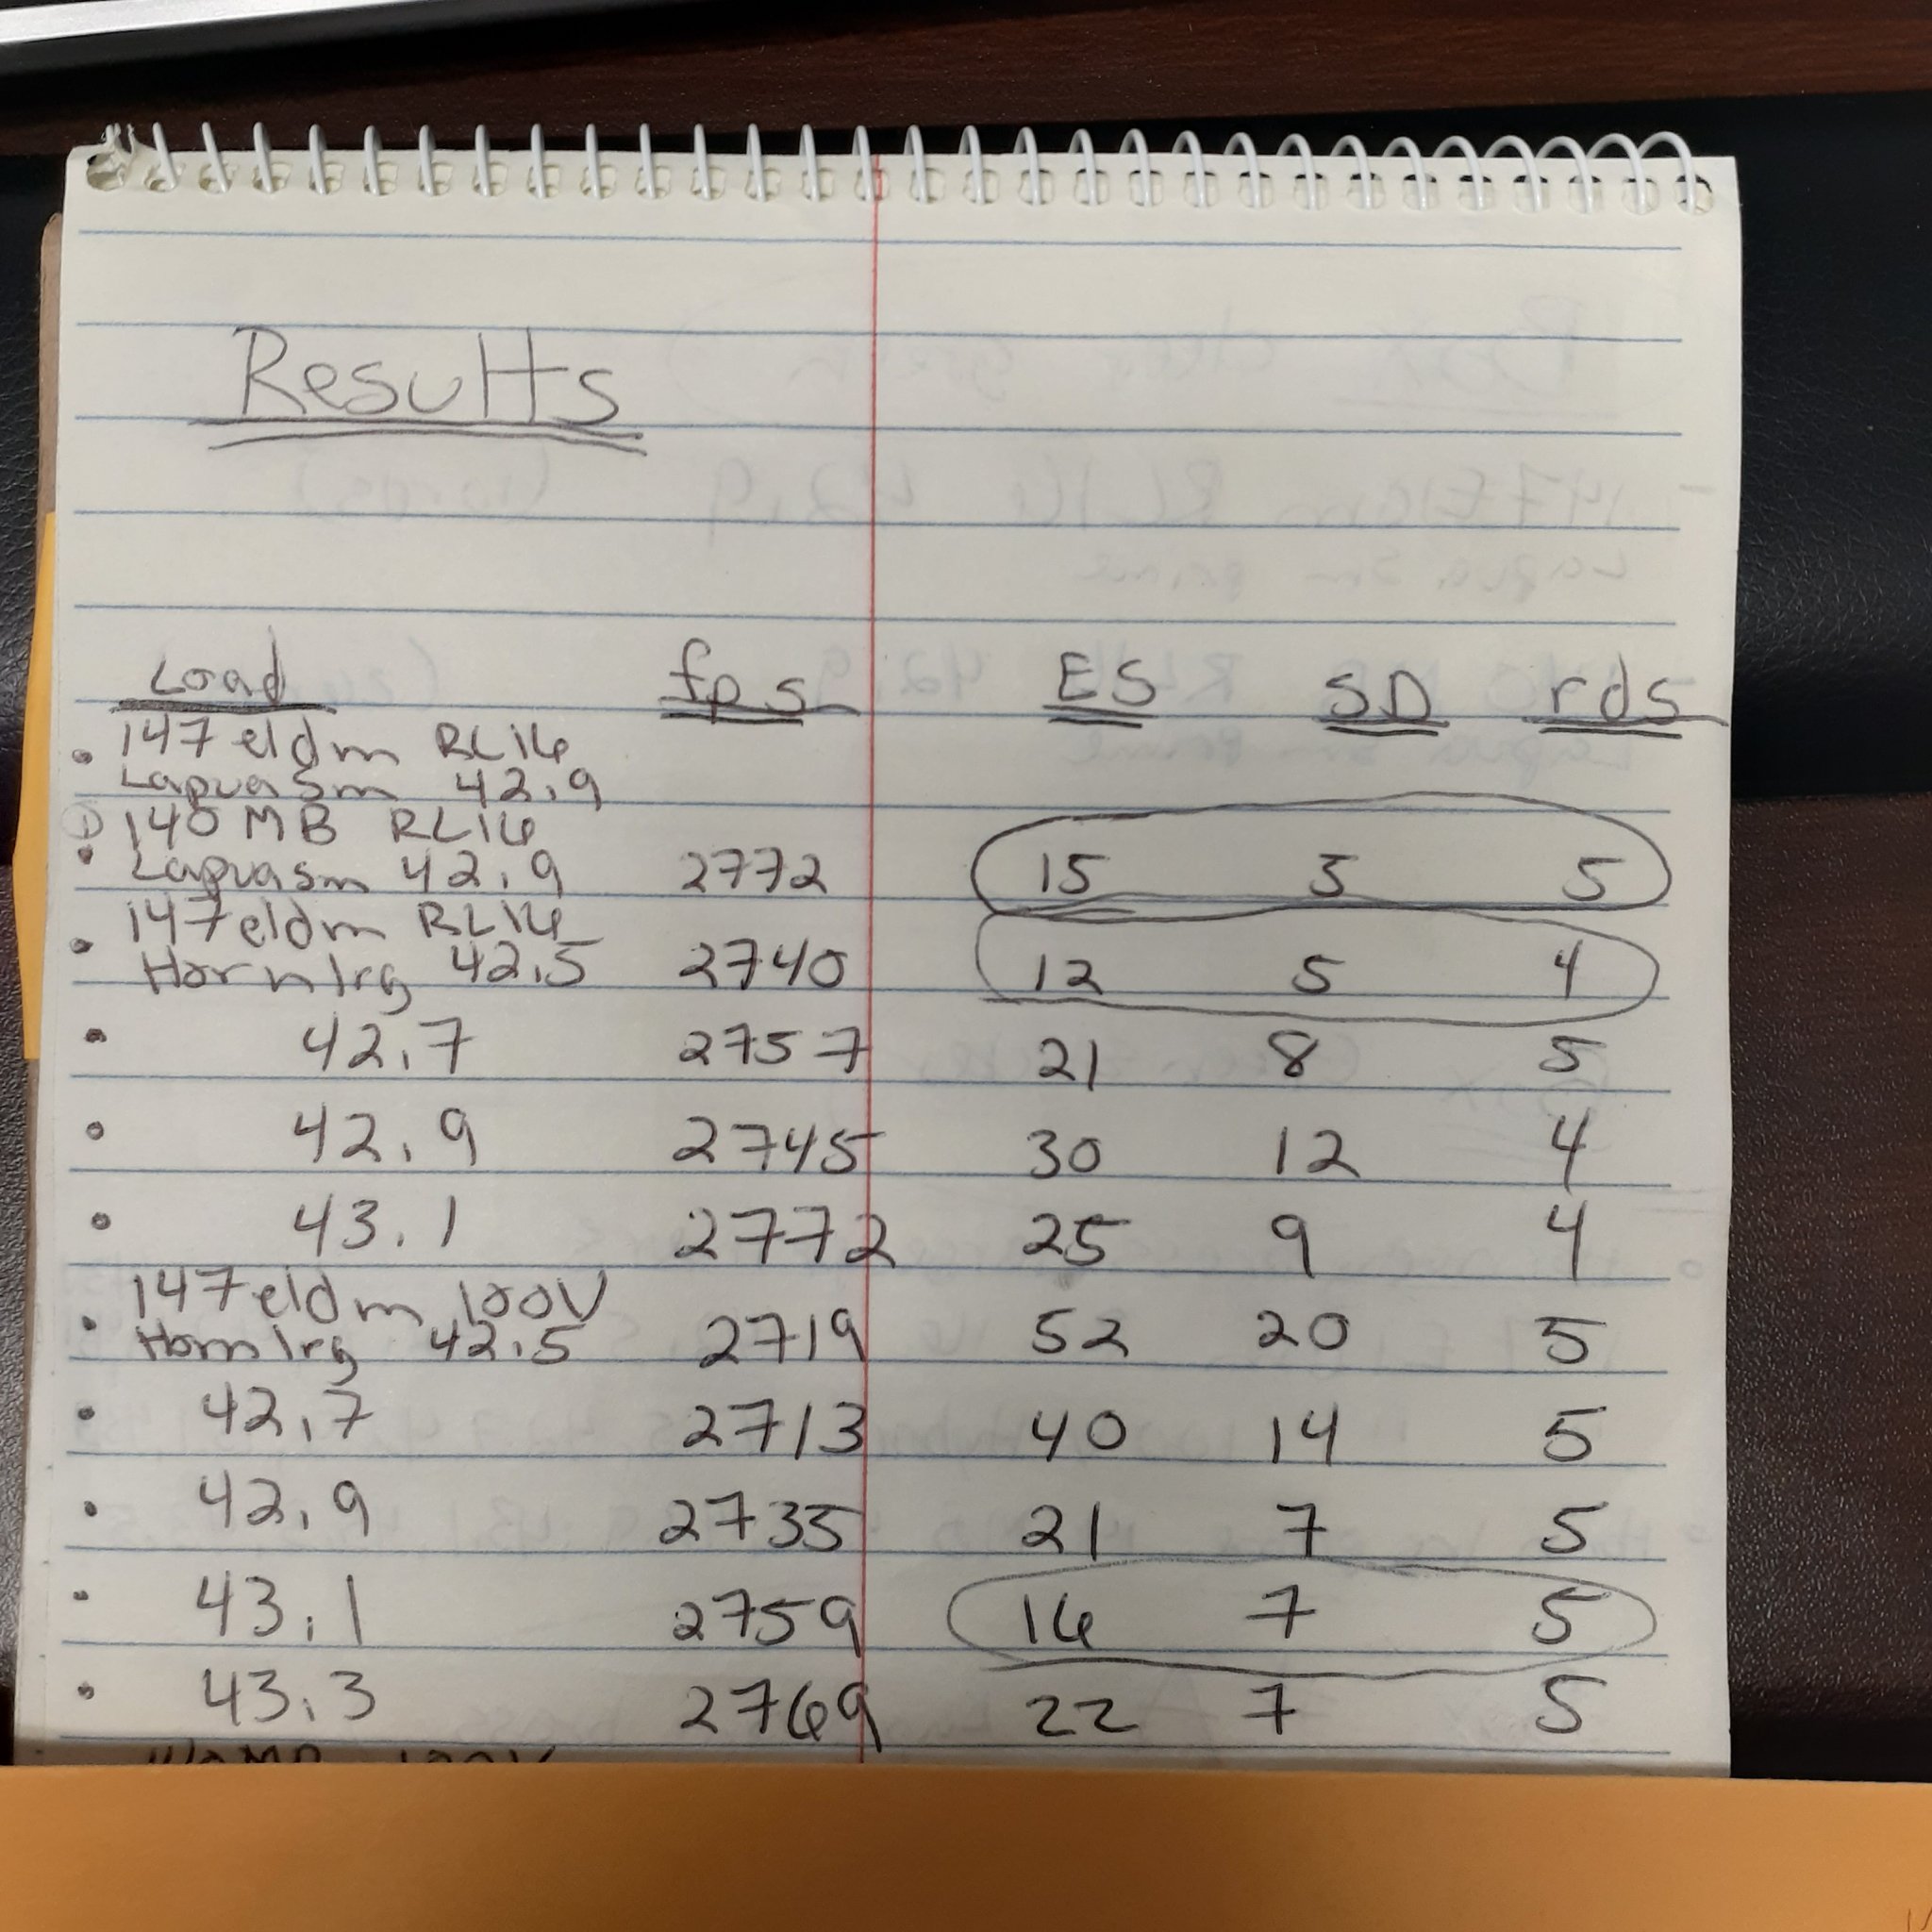 Results
Load fps ES SD rds
• 147 eldm RL16
Lapua Sm 42.9
140 MB RL16
• Lapua sm 42.9 2772 15 5 5
147 eldm RL16
• Horn lrg 42.5 2740 12 5 4
• 42.7 2757 21 8 5
• 42.9 2745 30 12 4
• 43.1 2772 25 9 4
147 eldm 100V
• Horn lrg 42.5 2719 52 20 5
• 42.7 2713 40 14 5
• 42.9 2735 21 7 5
• 43.1 2759 16 7 5
• 43.3 2769 22 7 5